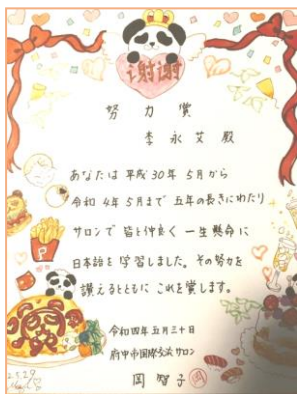 谢谢
努力賞
李永艾殿
あなたは平成30年5月から
令和4年5月まで五年の長きにわたり
サロンで皆と仲良く一生懸命に
日本語を学習しました。その努力を
讃えるとともにこれを賞します。
令和四年五月三十日
府中市国際交流サロン
岡智子
P